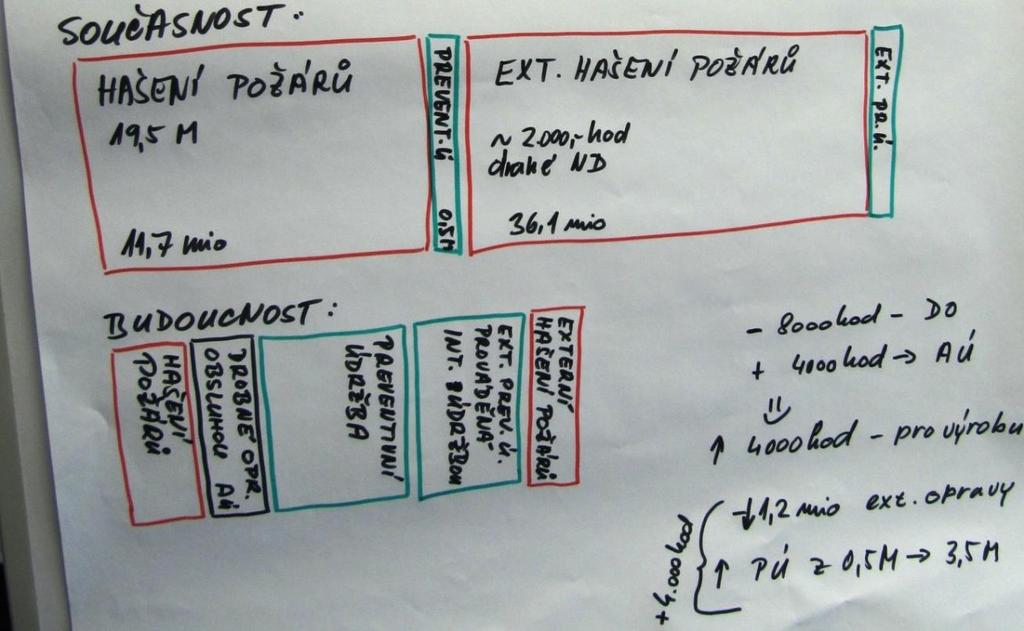 SOUČASNOST:
HAŠENÍ POŽÁRŮ
19,5 M
11,7 mio
PREVENT. Ú 0,5M
EXT. HAŠENÍ POŽÁRŮ
~ 2.000,- hod
drahé ND
36,1 mio
EXT. PR. Ú.
BUDOUCNOST:
HAŠENÍ
POŽÁRŮ
DROBNÉ OPR.
OBSLUHOU AÚ
PREVENTIVNÍ
ÚDRŽBA
EXT. PREV. Ú.
PROVÁDĚNÁ
INT. ÚDRŽBOU
EXTERNÍ
HAŠENÍ POŽÁRŮ
- 8000 hod - DO
+ 4000 hod → AÚ
↑ 4000 hod - pro výrobu
+ 4.000 hod
↓ 1,2 mio ext. opravy
↑ PÚ z 0,5M → 3,5M